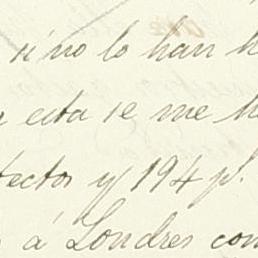 si no lo han h
a esta se me h
tectos y 194 p.
á Londres con